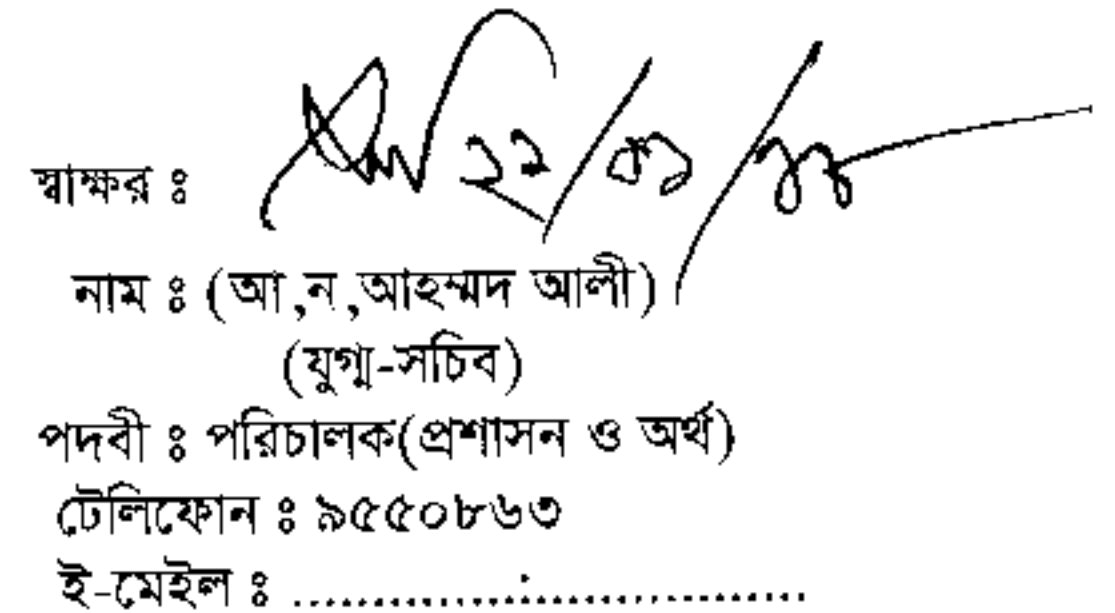 স্বাক্ষর ঃ
নাম ঃ (আ,ন,আহম্মদ আলী)
(যুগ্ম-সচিব)
পদবী ঃ পরিচালক(প্রশাসন ও অর্থ)
টেলিফোন ঃ ৯৫৫০৮৬৩
ই-মেইল ঃ ................................